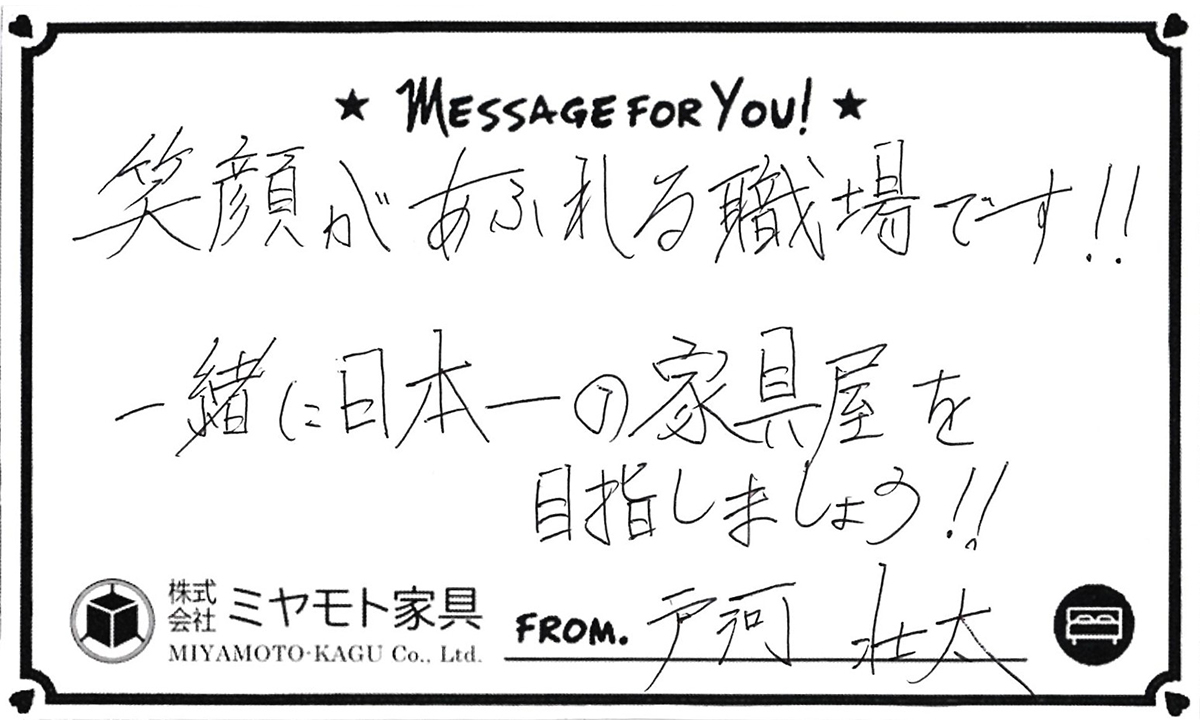 ★ MESSAGE FOR YOU! ★
笑顔があふれる職場です!!
一緒に日本一の家具屋を
目指しましょう!!
株式会社 ミヤモト家具
MIYAMOTO-KAGU Co., Ltd.
FROM. 戸河 壮太